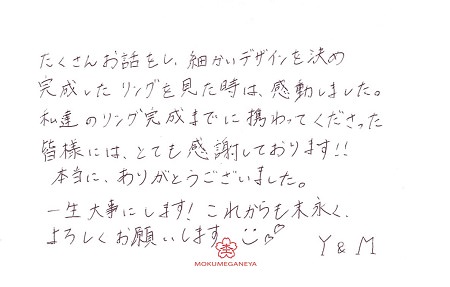 たくさんお話をし、細かいデザインを決め
完成したリングを見た時は、感動しました。
私達のリング完成までに携わってくださった
皆様には、とても感謝しております!!
本当に、ありがとうございました。
一生大事にします! これからも末永く、
よろしくお願いします
Y & M
MOKUMEGANEYA